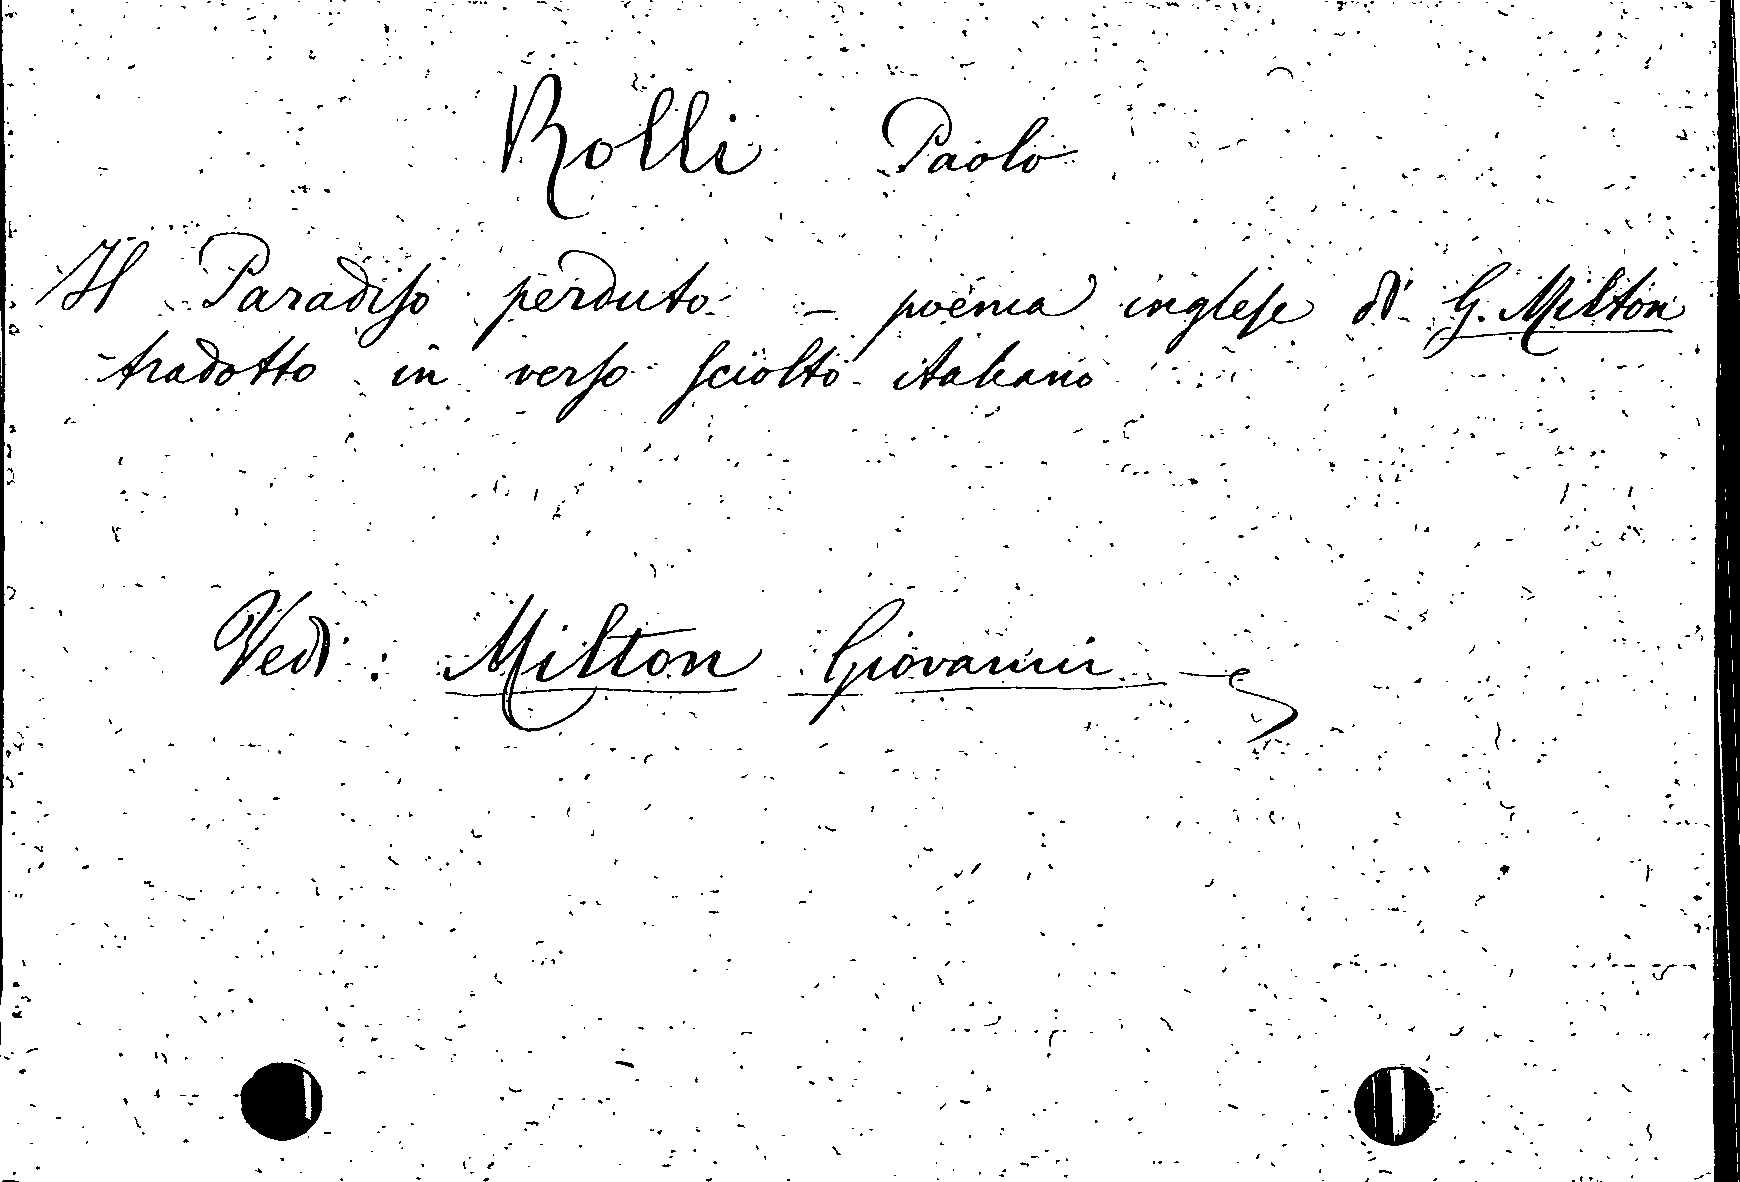 Rolli Paolo
Il Paradiso perduto - poema inglese di G. Milton
tradotto in verso sciolto italiano
Vedi : Milton Giovanni